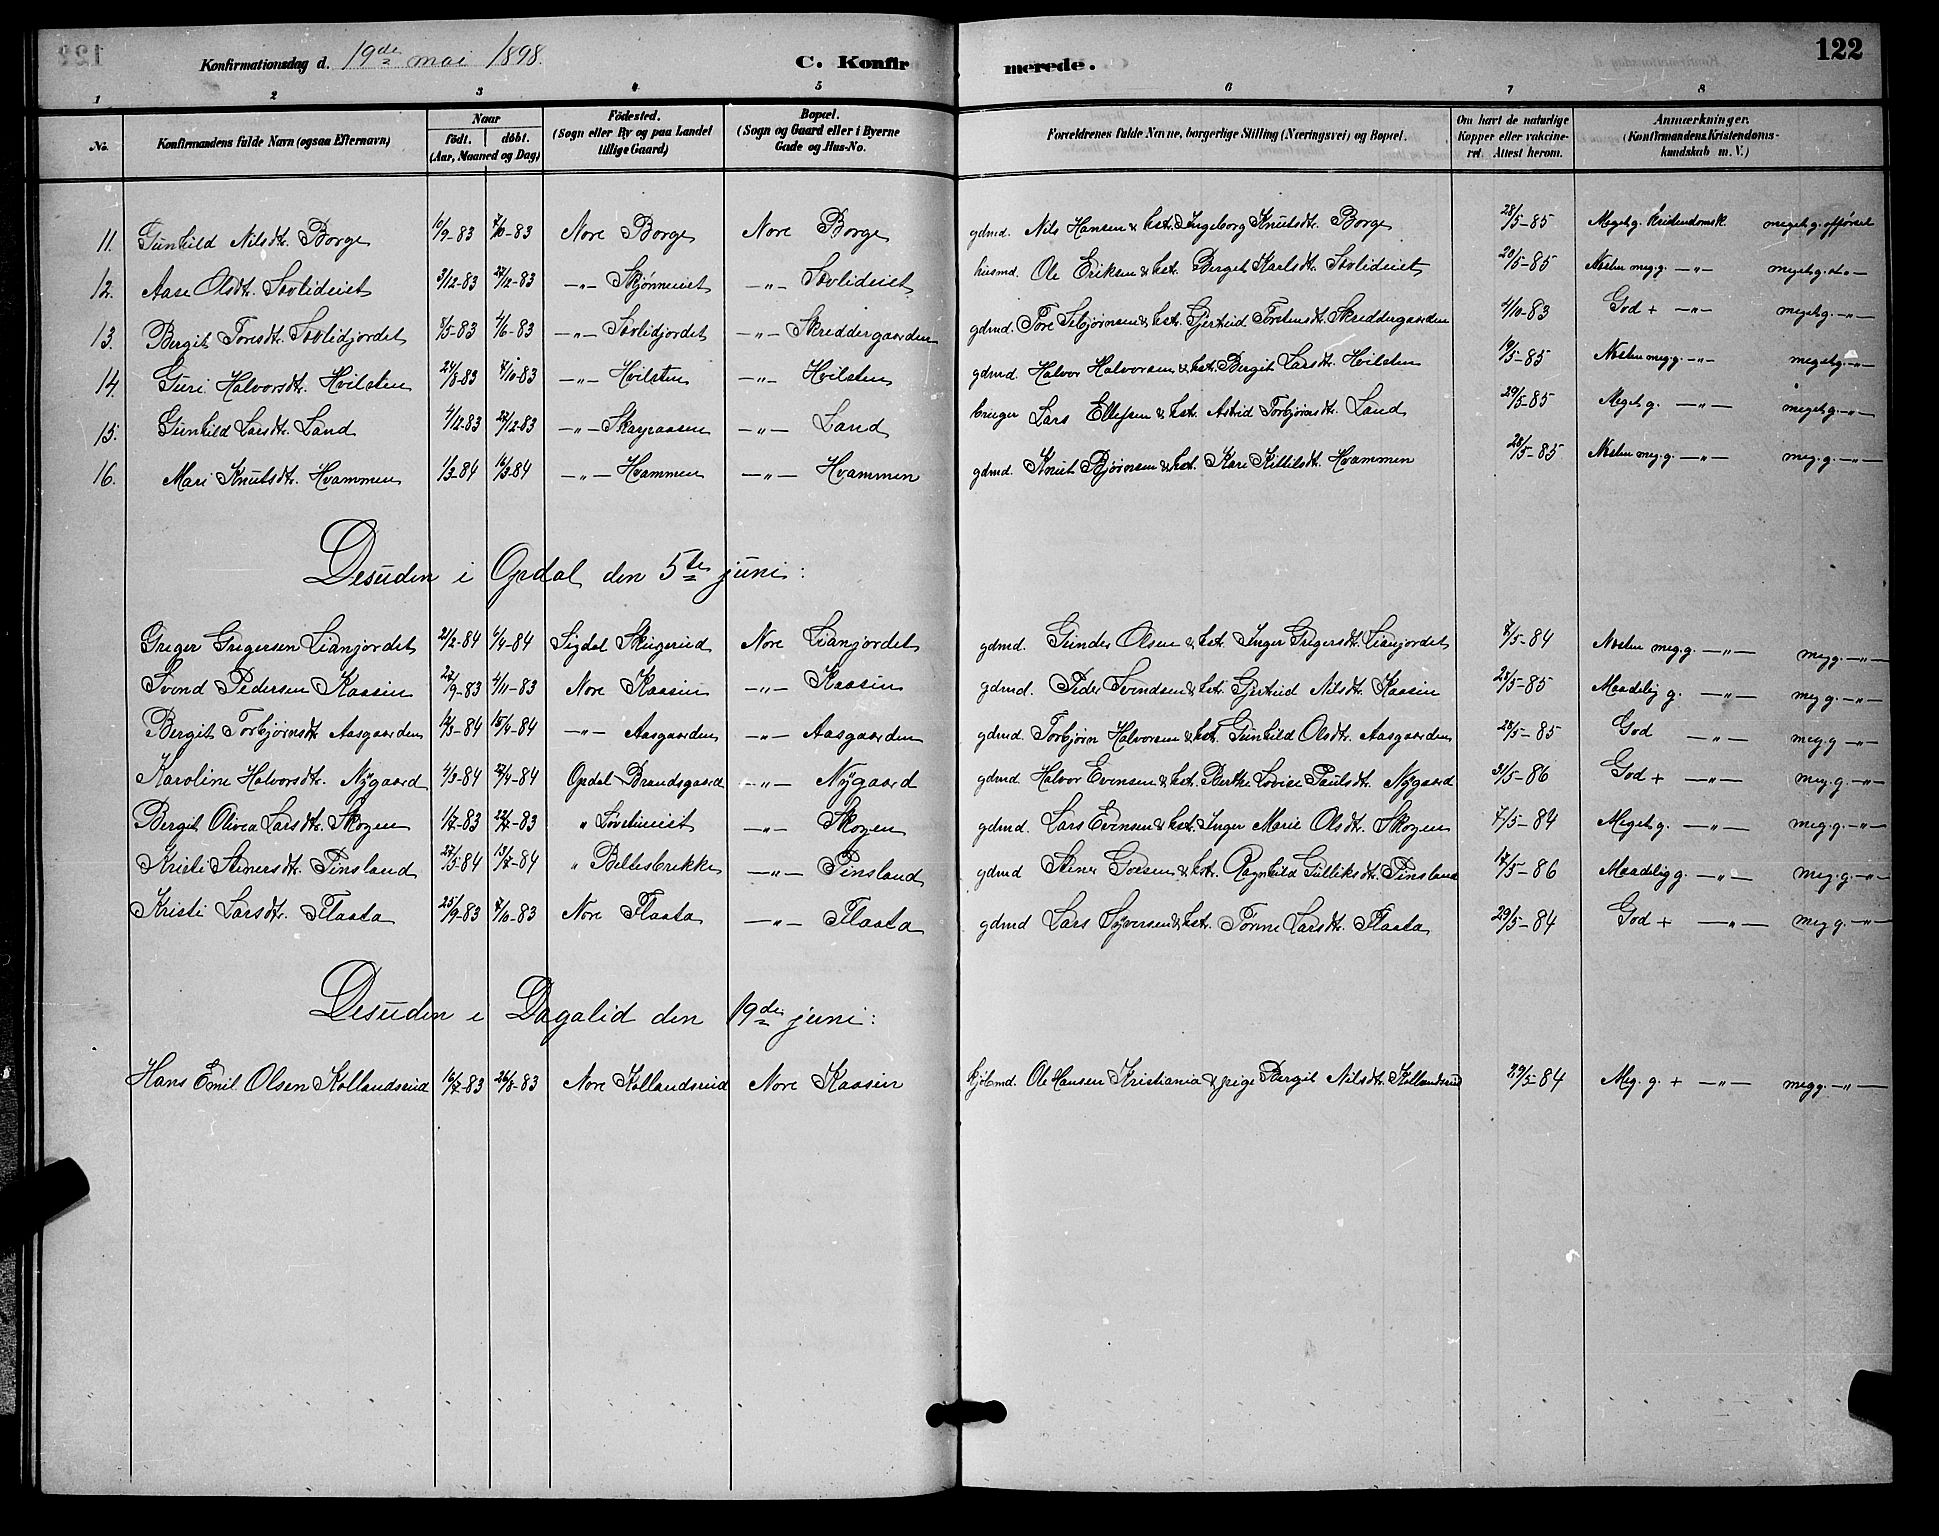 Konfirmationsdag d. 19de mai 1898. C. Konfirmerede. 122
1 2 3 4 5 6 7 8
No. Konfirmandens fulde Navn (ogsaa Efternavn) Naar født. døbt. (Aar, Maaned og Dag) Fødested. (Sogn eller By og paa Landet tillige Gaard) Bopæl. (Sogn og Gaard eller i Byerne Gade og Hus-No. Forældrenes fulde Navne, borgerlige Stilling (Næringsvei) og Bopæl. Om havt de naturlige Kopper eller vakcineret. Attest herom. Anmærkninger. (Konfirmandens Kristendomskundskab m. V.)
11. Gunhild Nilsdt. Borge 10/9-83 7/10-83 Nore Borge Nore Borge gdmd. Nils Hansen & hst. Ingeborg Knutsdt. Borge 28/5-85 Meget g. kristendomsk. meget g. opførsel
12. Aase Olsdt. Sovlideiet 3/12-83 27/12-83 -"- Skjønneiet -"- Sovlideiet husmd. Ole Eriksen & hst. Berget Karlsdt. Sovlideiet 20/5-85 Nesten meg. g. -"- meget g. -"-
13. Bergit Toresdt. Sovlidjordet 8/5-83 4/6-83 -"- Sovlidjordet -"- Skreddergaarden gdmd. Tore Sebjørnsen & hst. Gjertrud Torstensdt. Skreddergaarden 4/10-83 God + -"- meget g. -"-
14. Guri Halvorsdt. Hvilsten 24/8-83 7/10-83 -"- Hvilsten -"- Hvilsten gdmd. Halvor Halvorsen & hst. Bergit Larsdt. Hvilsten 19/5-85 Nesten meg. g. -"- meget g. -"-
15. Gunhild Larsdt. Land 4/12-83 27/12-83 -"- Skarpaasen -"- Land bruger Lars Ellefsen & hst. Astrid Torbjørnsdt. Land 29/5-85 Meget g. -"- meget g. -"-
16. Mari Knutsdt. Hvammen 1/3-84 16/3-84 -"- Hvammen -"- Hvammen gdmd. Knut Bjørnsen & hst. Kari Kittilsdt. Hvammen 28/5-85 Nesten meg. g. -"- meg. g. -"-
Desuden i Opdal den 5te juni:
Greger Gregersen Lianjordet 21/2-84 6/4-84 Sigdal Skugerud Nore Lianjordet gdmd. Gunder Olsen & hst. Inger Gregersdt. Lianjordet 7/5-84 Nesten meg. g. -"- meg g. -"-
Svend Pedersen Kaasin 27/9-83 4/11-83 Nore Kaasin -"- Kaasin gdmd. Peder Svendsen & hst. Gjertrud Nilsdt. Kaasin 28/5-85 Maadelig g. -"- meg g. -"-
Bergit Torbjørnsdt. Aasgaarden 12/3-84 15/4-84 -"- Aasgaarden -"- Aasgaarden gdmd. Torbjørn Halvorsen & hst. Gunhild Olsdt. Aasgaarden 28/5-85 God -"- meg. g -"-
Karoline Halvorsdt. Nygaard 4/3-84 27/4-84 Opdal Brandsgaard -"- Nygaard gdmd. Halvor Evensen & hst. Berthe Lovise Paulsdt. Nygaard 31/5-86 God + -"- meg. g. -"-
Bergit Olivea Larsdt. Skogen 1/7-83 22/7-83 " Løvetueiet -"- Skogen gdmd. Lars Evensen & hst. Inger Marie Olsdt. Skogen 7/5-84 Meget g. -"- meg. g. -"-
Kristi Stenersdt. Pinsland 27/5-84 13/7-84 " Beltesbrekke -"- Pinsland gdmd Stener Goesen & hst. Ragnhild Gulliksdt. Pinsland 17/5-86 Maadelig g. -"- meg. g. -"-
Kristi Larsdt. Flaata 25/9-83 7/10-83 Nore Flaata -"- Flaata gdmd Lars Syversen & hst. Tonne Larsdt. Flaata 29/5-84 God + -"- meg g. -"-
Desuden i Dagalid den 19de juni:
Hans Emil Olsen Kollandsrud 16/7-83 26/8-83 Nore Kollandsrud Nore Kaasin kjøbmd. Ole Hansen Kristiania & pige Bergit Nilsdt. Kollandsrud 29/5-84 Meg. g. + -"- meg g. -"-